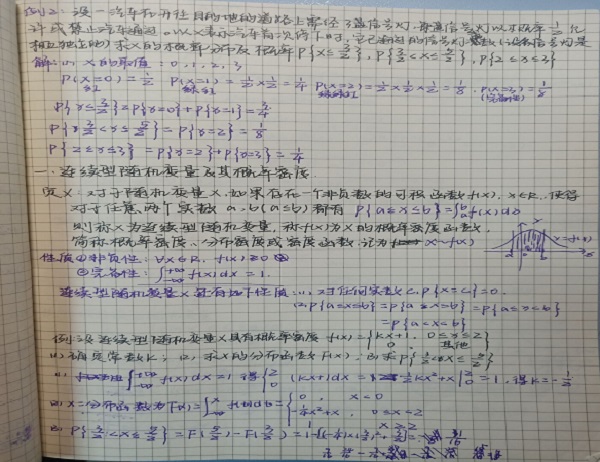 例2:设一汽车在开往目的地的道路上需经过3盏信号灯,每盏信号灯以概率1/2允
许或禁止汽车通过,以X表示汽车首次停下时,它已通过的信号灯盏数(设各信号灯是
相互独立的)求X的概率分布及概率P{X≤3/2},P{3/2<X≤5/2},P{2≤X≤3}
解:(1) X的取值:0,1,2,3
P(X=0)=1/2 P(X=1)=1/2×1/2=1/4 P(X=2)=1/2×1/2×1/2=1/8 . P(X=3)=1/8
P{X≤3/2}=P{X=0}+P{X=1}=3/4
P{3/2<X≤5/2}=P{X=2}=1/8
P{2≤X≤3}=P{X=2}+P{X=3}=1/4
一、连续型随机变量及其概率密度
定义:对于随机变量X,如果存在一个非负数的可积函数f(x),x∈R,使得
对于任意两个实数a.b(a≤b)都有 P{a≤X≤b}=∫f(x)dx
则称X为连续型随机变量,称f(x)为X的概率密度函数,
简称概率密度、分布密度或密度函数,记为X~f(x)
性质:①非负性:∀x∈R,f(x)≥0
②完备性:∫f(x)dx=1.
连续型随机变量X还有如下性质:(1)对任何实数c,P{X=c}=0.
(2)P{a≤X≤b}=P{a≤X<b}=P{a<X≤b}
=P{a<X<b}
例:设连续型随机变量X具有概率密度 f(x)={kx+1, 0≤x≤2
0, 其他
(1)确定常数k; (2)求X的分布函数F(x). (3)求P{3/2<X≤5/2}
(1) ∫f(x)dx=1 得∫(kx+1)dx=1/2kx²+x|=1,得k=-1/2
(2) X=分布函数为F(x)=∫f(t)dt={0, x<0
-1/4x²+x, 0≤x<2
1, x≥2
(3) P{3/2<X≤5/2}=F(5/2)-F(3/2)=